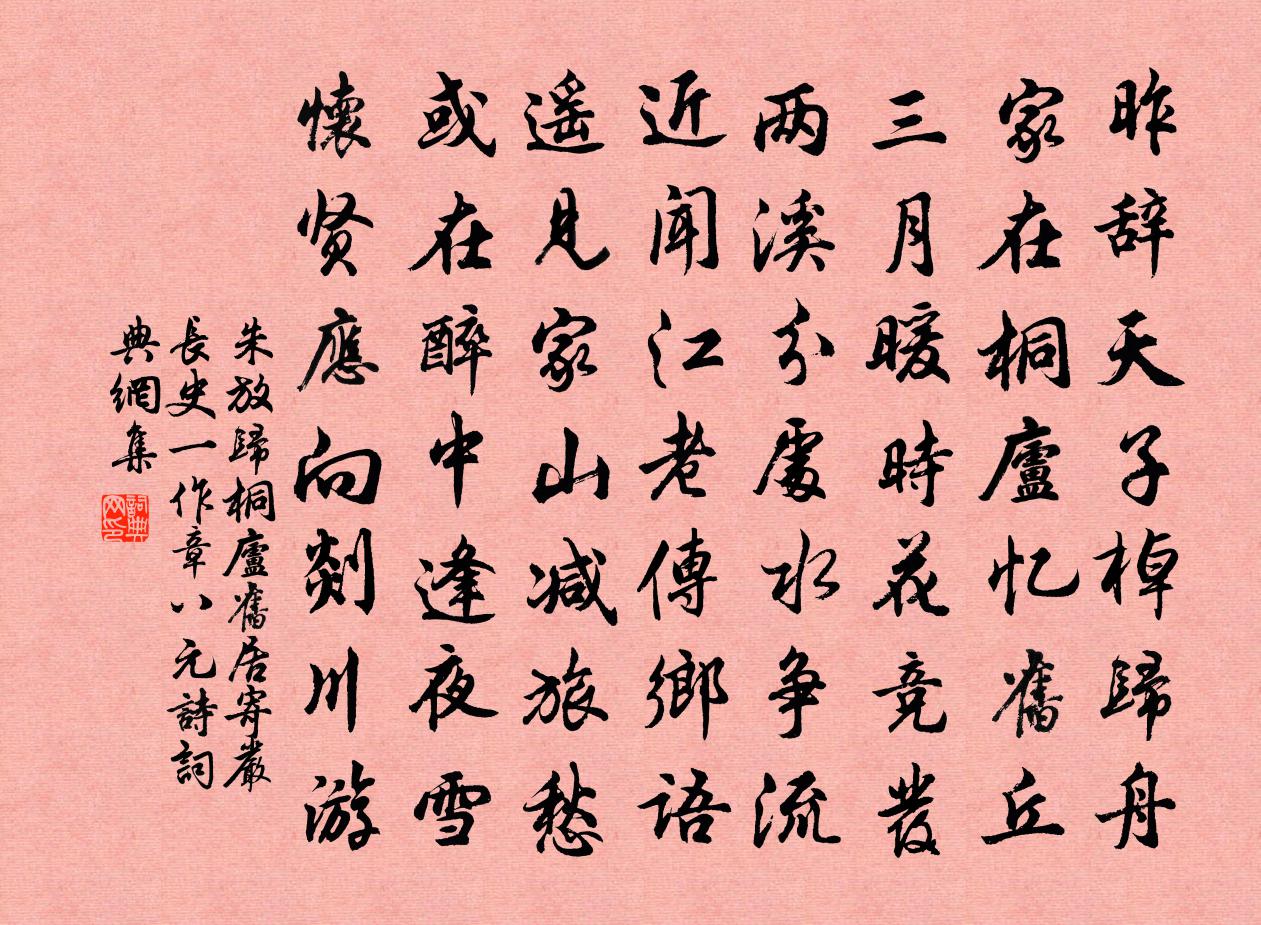 昨辞天子棹歸舟
家在桐廬忆舊丘
三月暖時花竞發
两溪分處水争流
近聞江老傳鄉語
遥見家山减旅愁
或在醉中逢夜雪
懷贤應向剡川游
朱放歸桐廬舊居寄嚴
長史一作章八元詩詞
典網集
詞典
网印